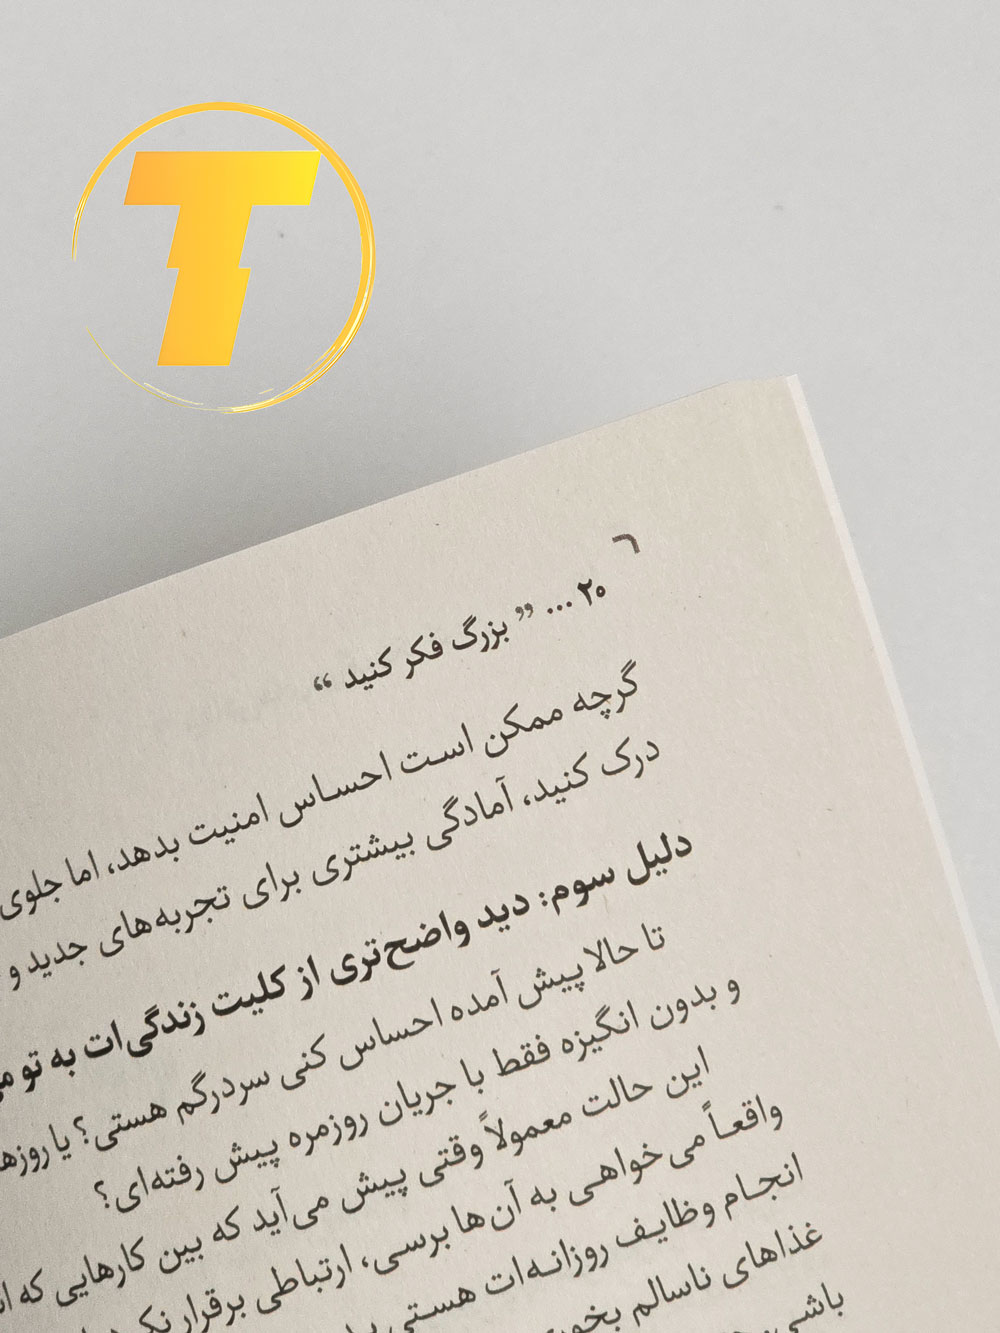 T
۲۰ ... ” بزرگ فکر کنید “
گرچه ممکن است احساس امنیت بدهد، اما جلوی
درک کنید، آمادگی بیشتری برای تجربه‌های جدید و
دلیل سوم: دید واضح‌تری از کلیت زندگی‌ات به تو
تا حالا پیش آمده احساس کنی سردرگم هستی؟ یا
و بدون انگیزه فقط با جریان روزمره پیش رفته‌ای؟
این حالت معمولاً وقتی پیش می‌آید که بین کارهایی که
واقعاً می‌خواهی به آن‌ها برسی، ارتباطی برقرار
انجام وظایف روزانه‌ات هستی
غذاهای ناسالم
باشی